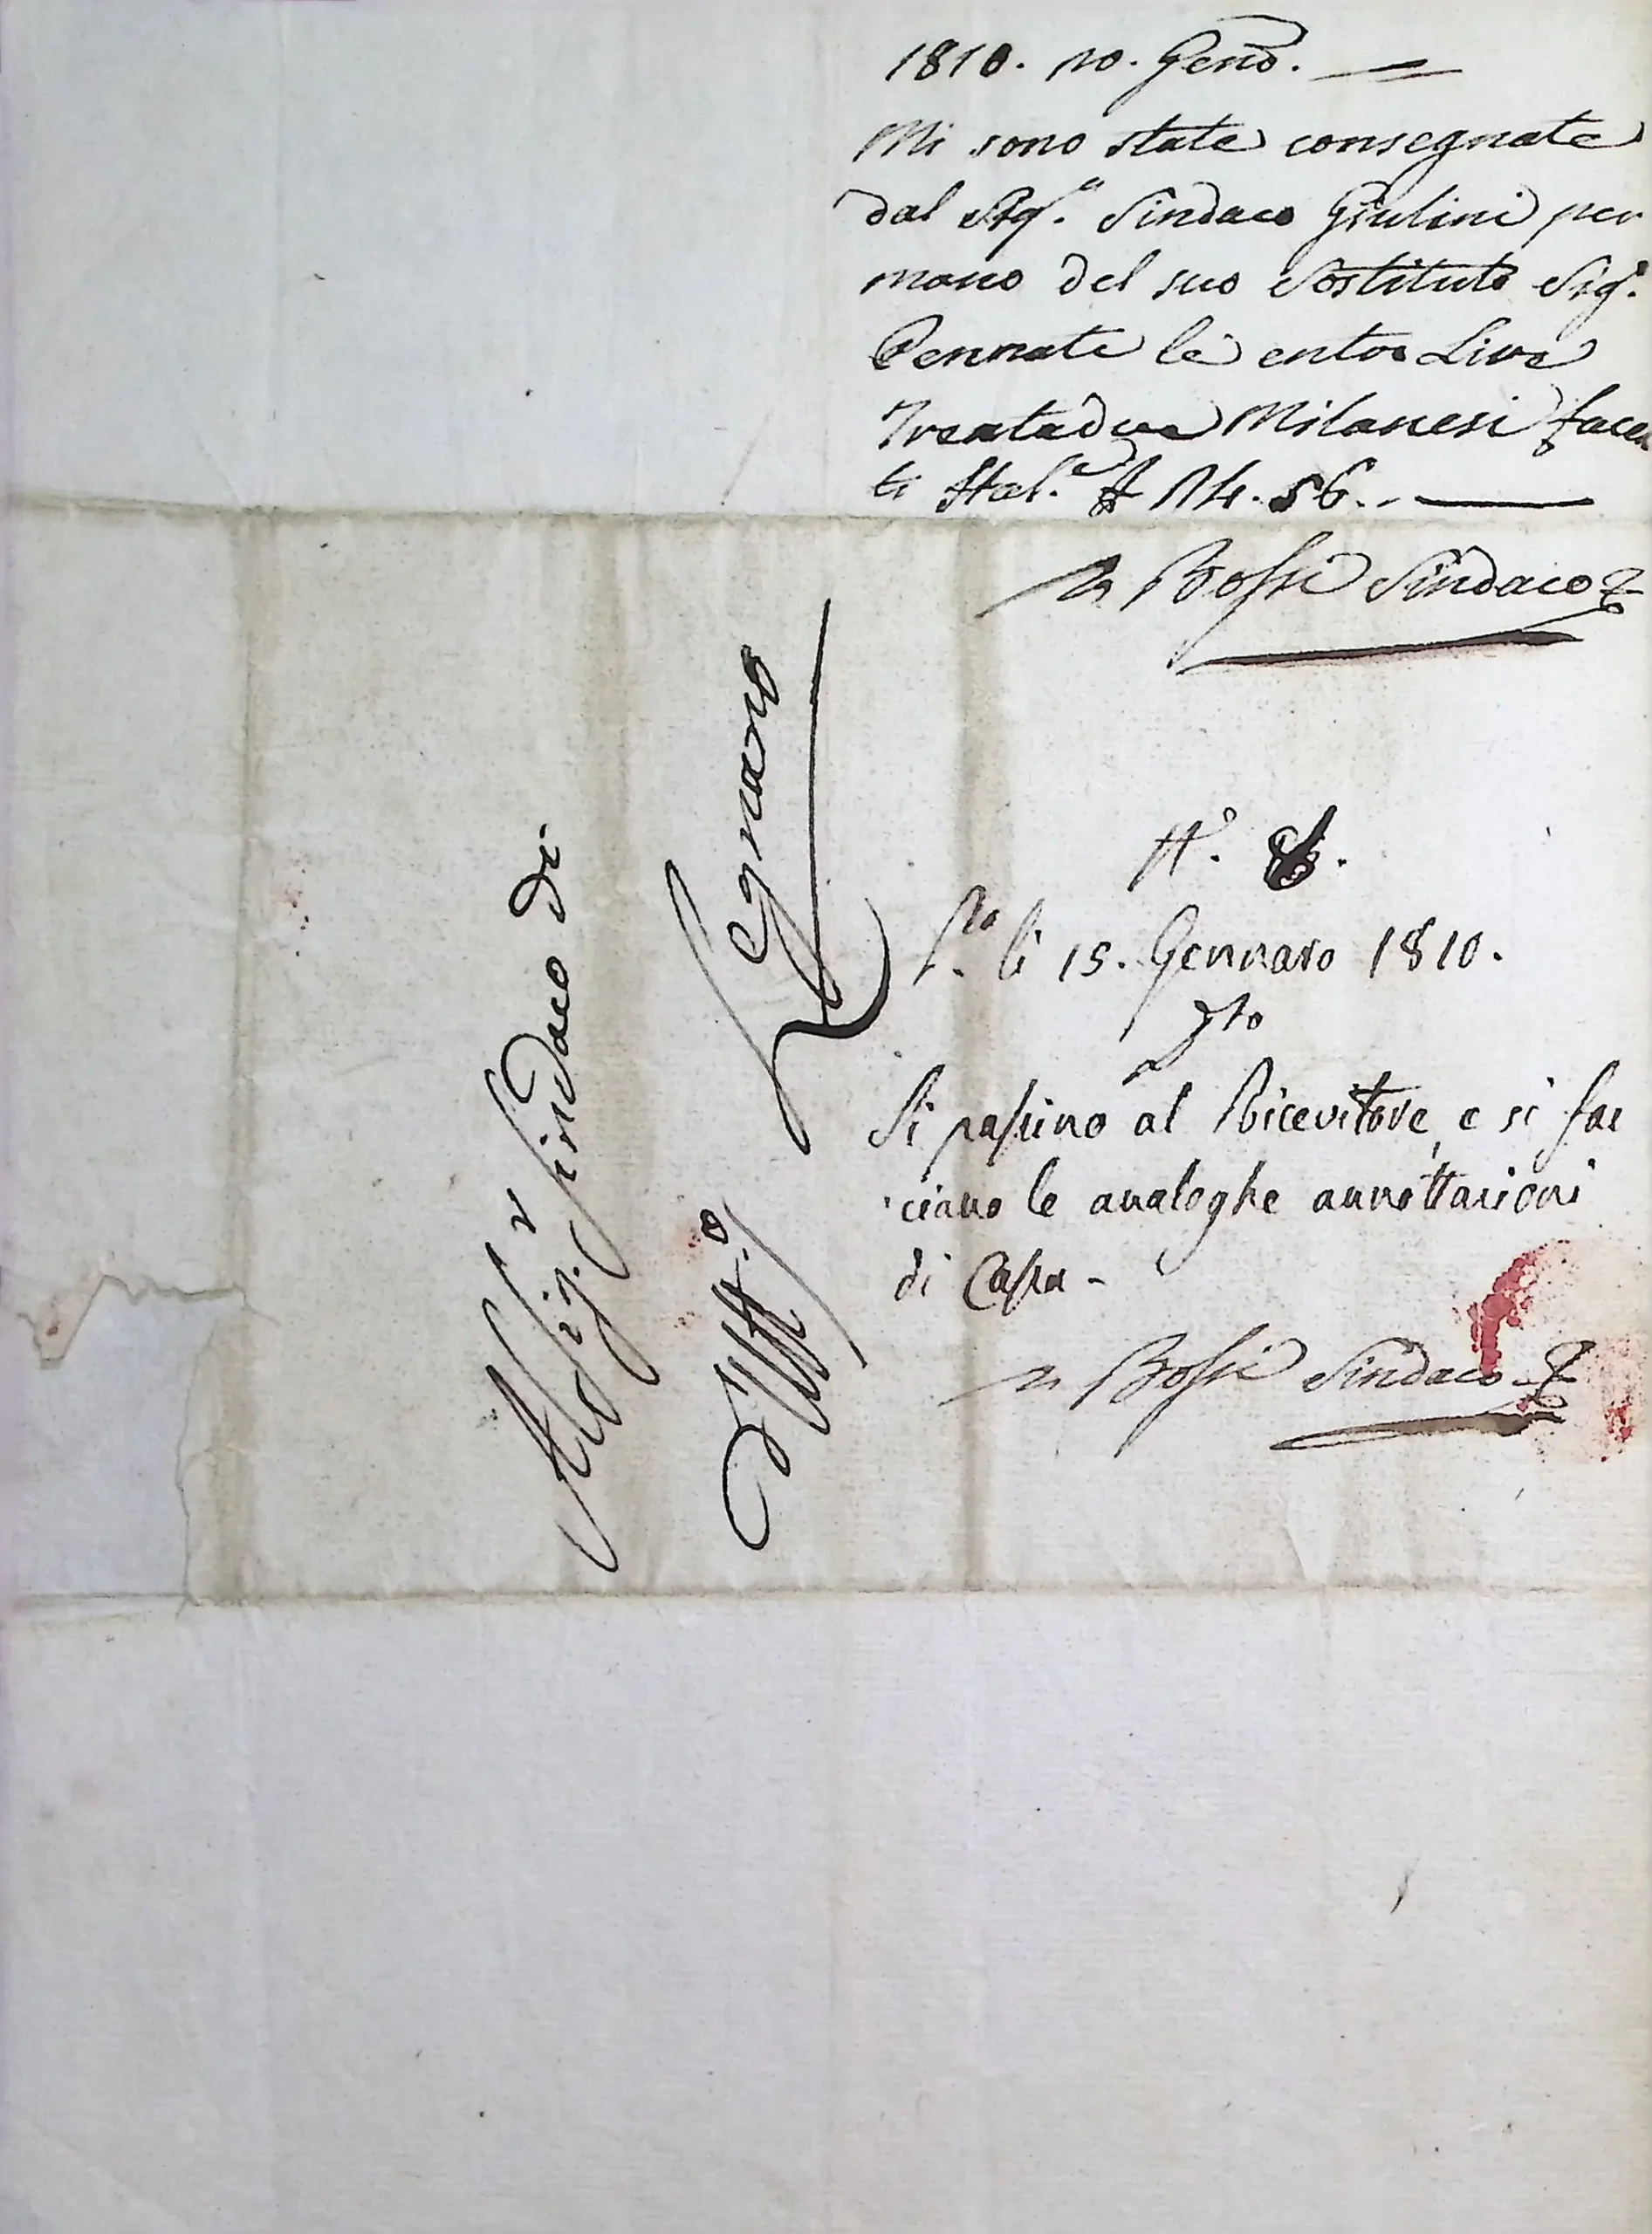 1810. 10. Genō.
Mi sono state consegnate
dal Sig.r Sindaco Giulini per
mano del suo Sostituto Sig.r
Pennati le entro Lire
Trentadue Milanesi facen
ti Ital.e 14. 56. -
Bossi Sindaco
Al Sig.r Sindaco di
Legnano
d'Uff.o
N.o
li 15. Gennaro 1810.
Si passino al Ricevitore, e si fac
ciano le analoghe annottazioni
di Cassa -
Bossi Sindaco